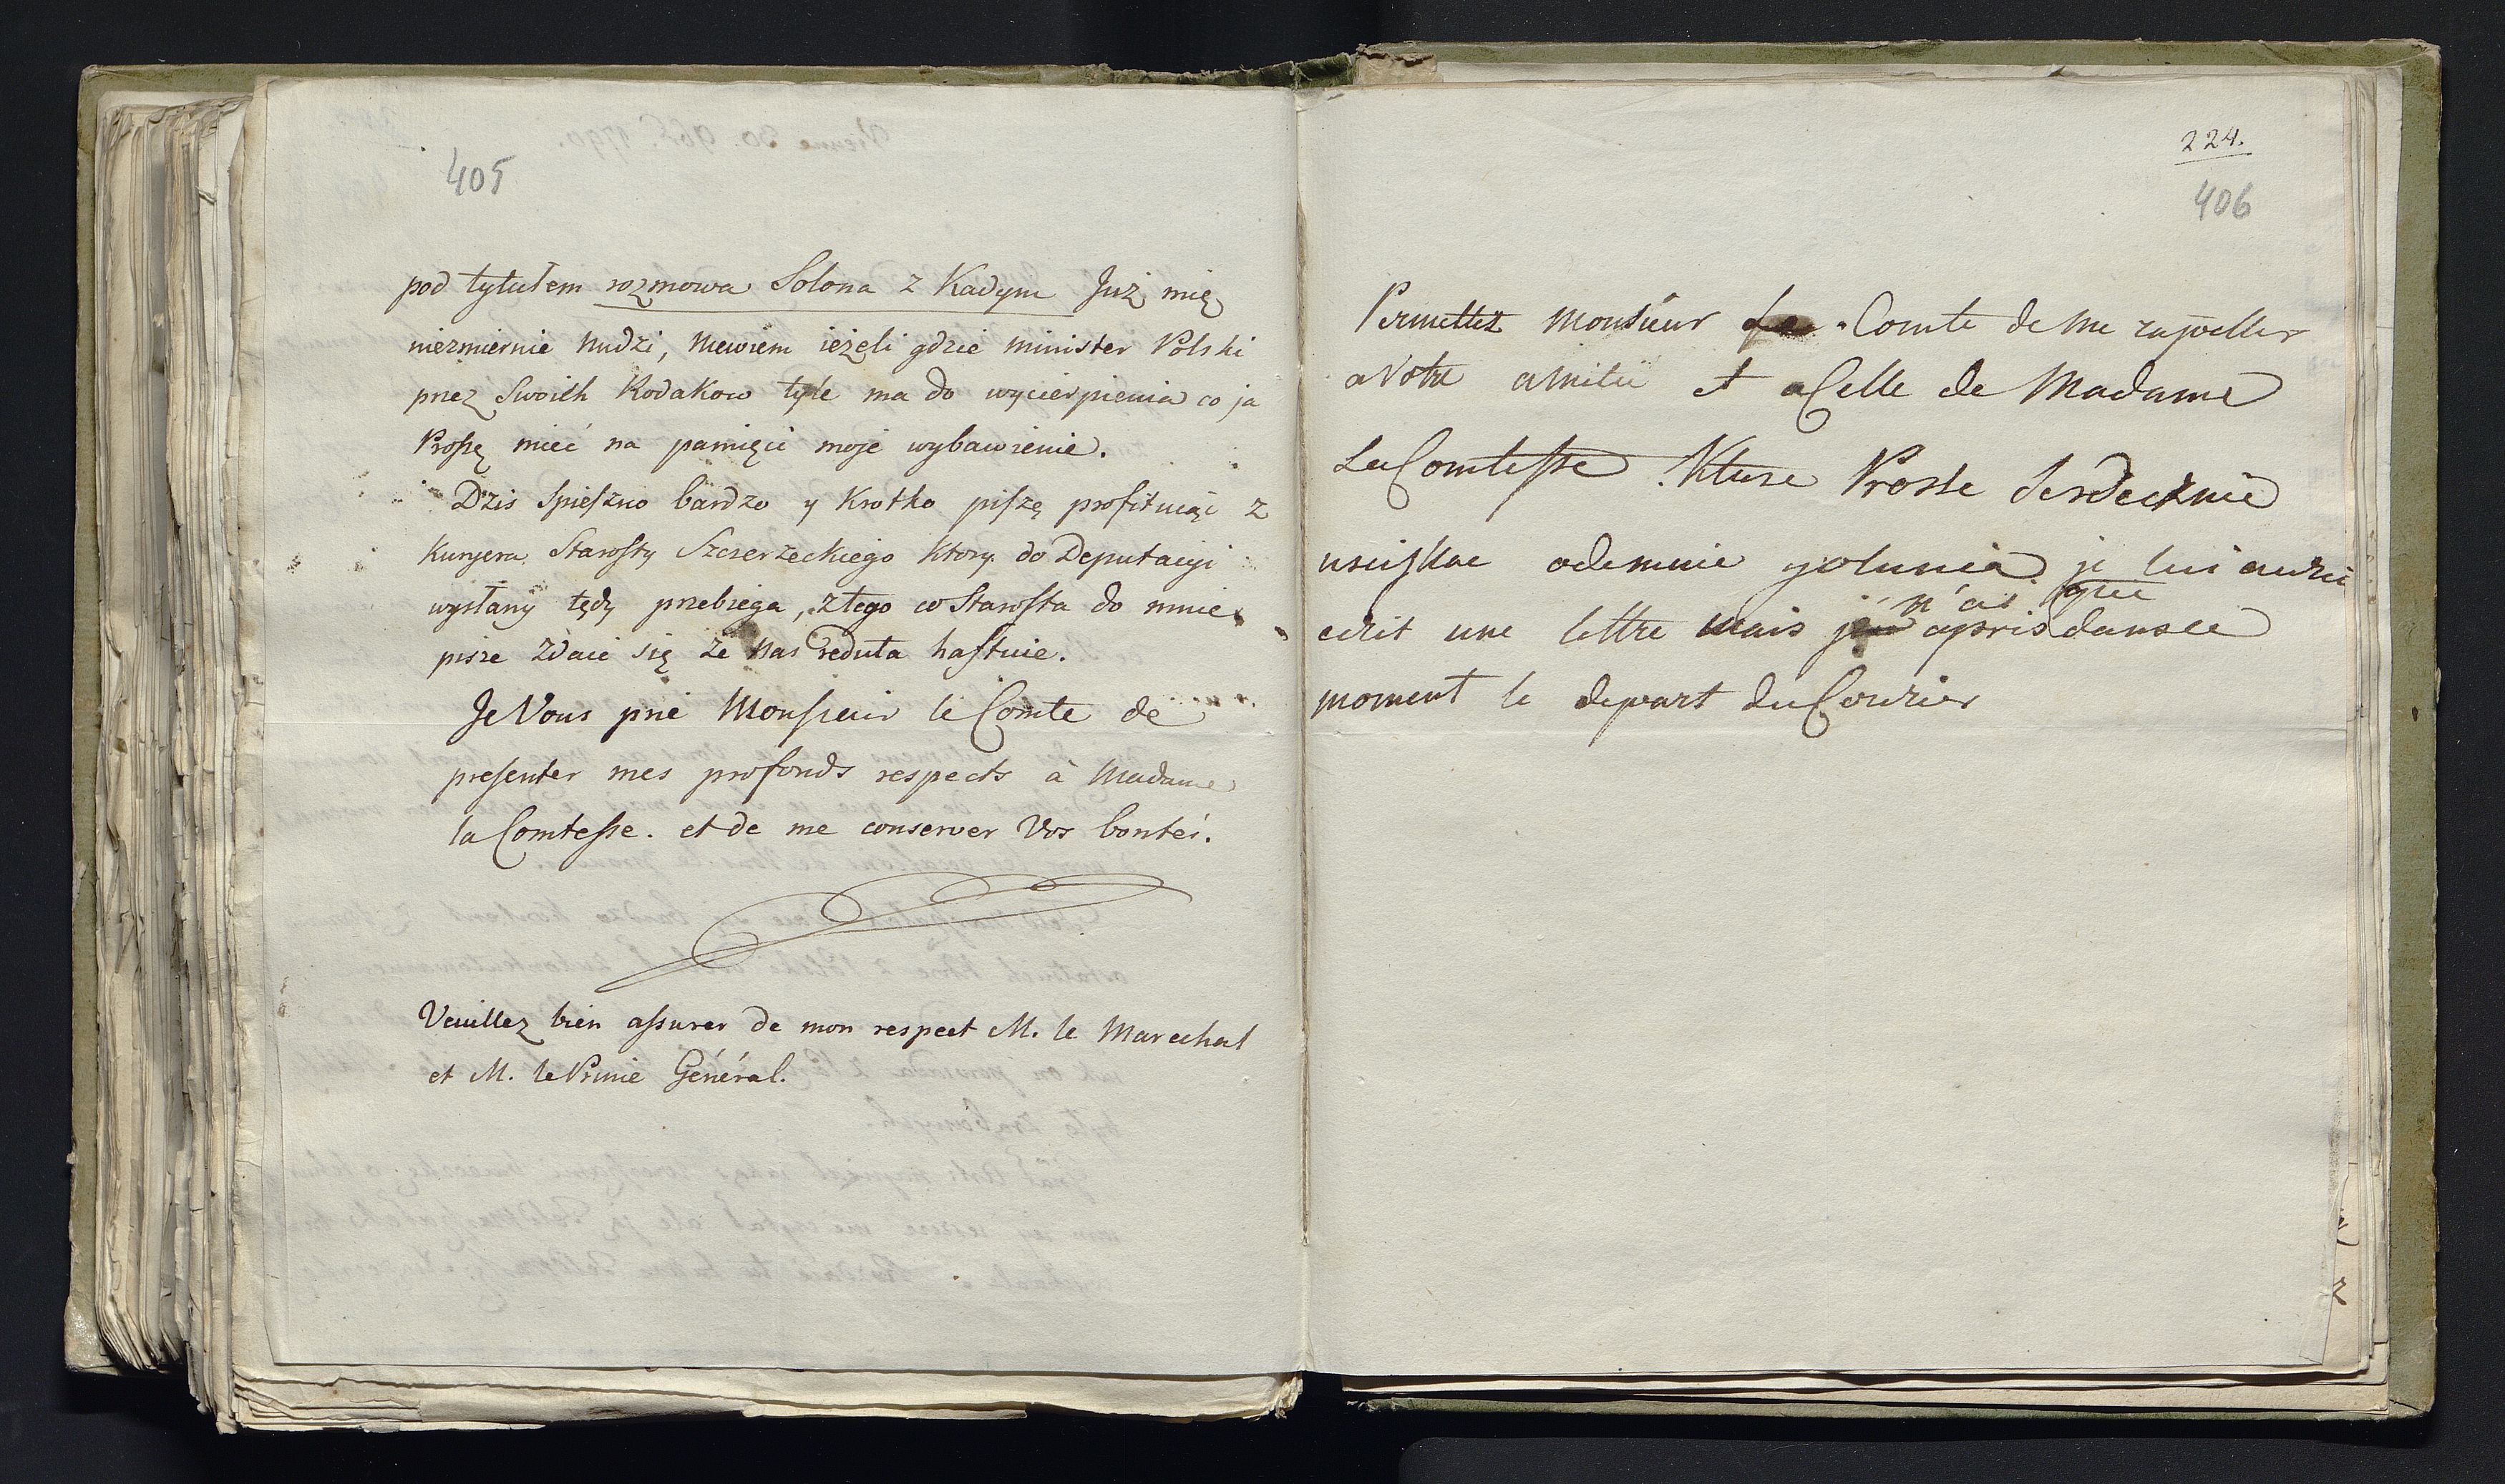 405
pod tytułem rozmowa Solona z Kadym Już mię
niezmiernie nudzi, niewiem ieżeli gdzie minister Polski
przez Swoich Rodakow tyle ma do wycierpienia co ja
Proszę mieć na pamięci moje wybawienie.
Dzis Spieszno bardzo y Krotko piszę profituiąc z
Kuryera Starosty Szczerzeckiego Ktory do Deputacyi
wysłany tędy przebiega, z tego co Starosta do mnie
pisze zdaie się że nas reduta hastuie.
Je Vous prie Monsieur le Comte de
presenter mes profonds respects à Madame
la Comtesse. et de me conserver Vos bontés.
Veuillez bien assurer de mon respect M. le Marechal
et M. le Prince Général.
224.
406
Permettez Monsieur Comte de me rapeller
a Votre amitie et a Celle de Madame
La Comtesse Kture Prosze Serdecznie
usciskac odemnie je lui aurai
n'ai que
ecrit une lettre mais apris dansce
moment le depart du Courier